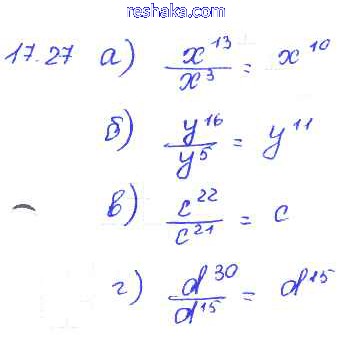 reshaka.com
17.27 а) x^13/x^3 = x^10
б) y^16/y^5 = y^11
в) c^22/c^21 = c
г) d^30/d^15 = d^15